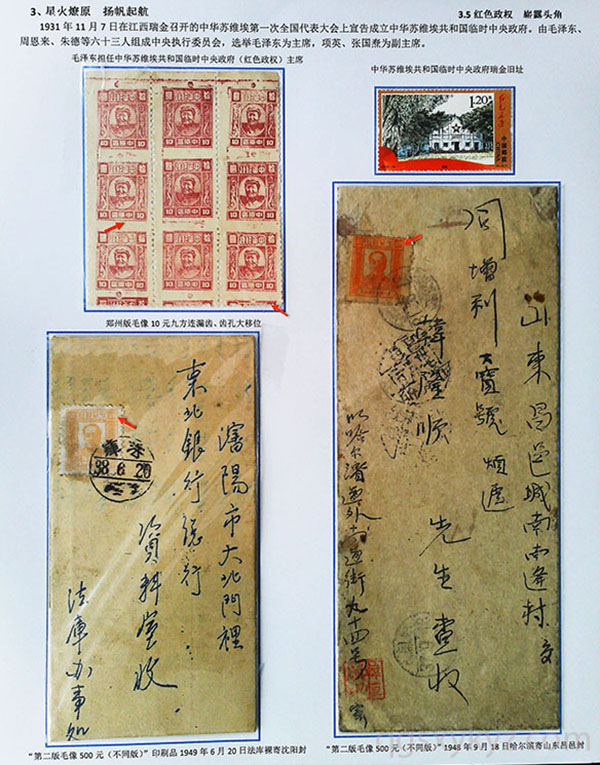 3、星火燎原 扬帆起航
3.5 红色政权 崭露头角
1931 年 11 月 7 日在江西瑞金召开的中华苏维埃第一次全国代表大会上宣告成立中华苏维埃共和国临时中央政府。由毛泽东、
周恩来、朱德等六十三人组成中央执行委员会，选举毛泽东为主席，项英、张国焘为副主席。
毛泽东担任中华苏维埃共和国临时中央政府（红色政权）主席
中华苏维埃共和国临时中央政府瑞金旧址
1.20元
中国邮政
CHINA
郑州版毛像 10 元九方连漏齿、齿孔大移位
瀋陽市大北門裡
東北銀行總行
資料室收
法庫办事処
38.6.20
山東昌邑城南南逢村交
同增利大寶號煩遞
韓隆順 先生查收
哈尔濱道外十道街九十四号
“第二版毛像 500 元（不同版）”印刷品 1949 年 6 月 20 日法库裸寄沈阳封
“第二版毛像 500 元（不同版）”1948 年 9 月 18 日哈尔滨寄山东昌邑封